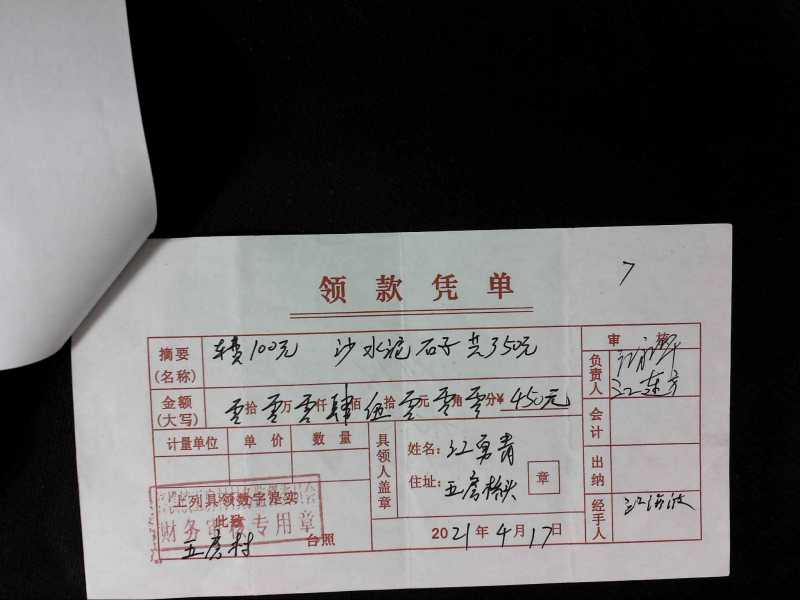 7
领款凭单
摘要(名称) 100元 沙 水泥 石子 共350元
审 核
金额(大写) 零拾零万零仟肆佰伍拾零元零角零分¥450元
负责人 江东方
计量单位 单价 数量
具领人盖章
姓名：江勇青
住址：五房桥头
章
会计
出纳
经手人
上列具领数字是实
此致
财务 专用章
五房村 台照
2021年4月17日